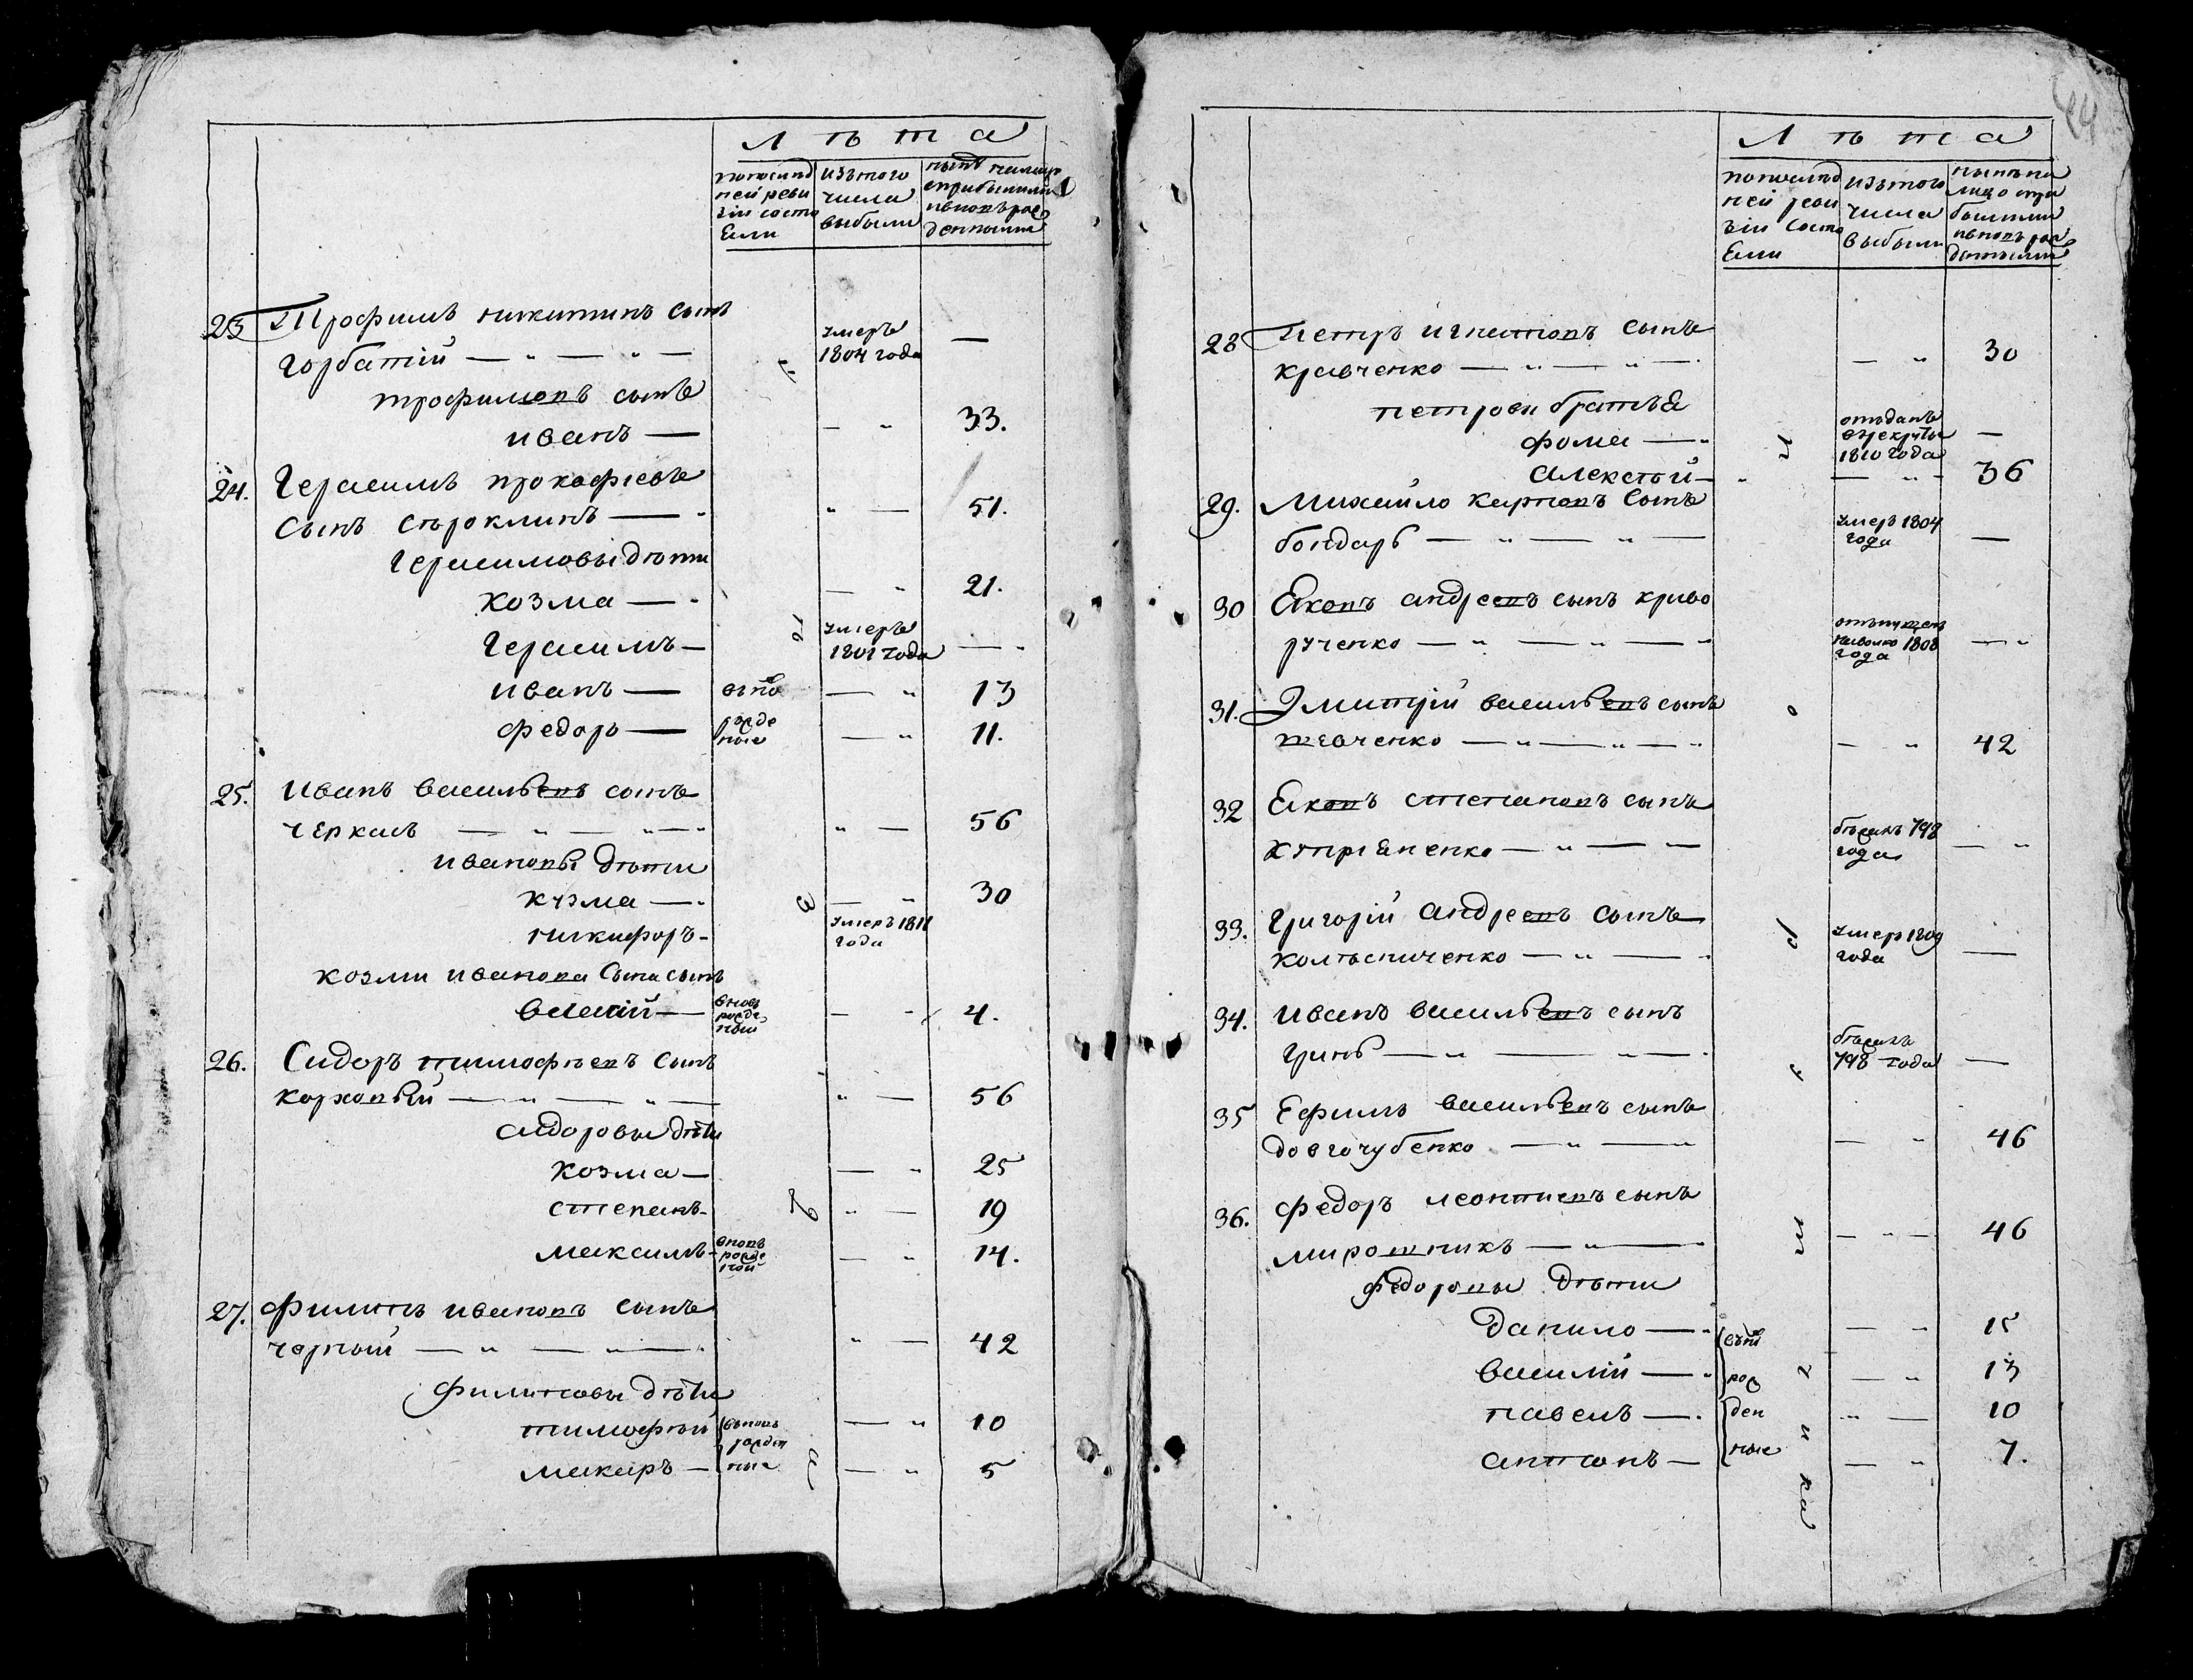 Лѣта
по последней ревизіи состояли
изътого числа выбыли
ныне налицо
23 Трофимъ никитинъ сынъ
умеръ
горбатій — " — " —
1804 года —
трофимовъ сынъ
иванъ — — " 33.
24. Герасимъ прокофіевъ
сынъ сѣроклинъ — " " — 51.
Герасимовы дѣти
козма — " — " 21.
умеръ
Герасимъ — 1801 года — "
иванъ — — " 13
федоръ — — " 11.
25. Иванъ васильевъ сынъ
черкасъ — " — " — " " — 56
ивановы дѣти
кузма — " — " 30
никифоръ - умеръ 1811 года
козми иванова сына сынъ
василій — вновь рожденой — - 4.
26. Сидоръ тимофѣевъ сынъ
коржовый — " — " — " — 56
сидоровы дѣти
козма — — " 25
степанъ - " — 19
максимъ - вновь рожденой — " 14.
27. Филипъ ивановъ сынъ
чорный — " — " — " " — 42
филиповы дѣти
тимофѣй вновь — " 10
макаръ — рожденные — " 5
44
Лѣта
по последней ревизіи состояли
изътого числа выбыли
ныне на лицо
28 Петръ игнатовъ сынъ
кравченко — " — " — " — " 30
петрови братья
фома — " отъданъ врекруты 1810 года —
алексѣй — " — " - 36
29. Михайло карповъ сынъ
бондарь — " — " — умеръ 1804 года —
30 Яковъ андреевъ сынъ криво
рученко — " — " — " отъпущенъ наволю 1808 года — "
31. Дмитрій васильевъ сынъ
шевченко — " — " — " — " 42
32 Яковъ степановъ сынъ
куприяненко — " — — бѣжалъ 798 года — "
33. Григорій андреевъ сынъ
колѣсниченко — " — " умеръ 1809 года —
34. Иванъ васильевъ сынъ
гринь — " — " — " бѣжалъ 798 года —
35 Ефимъ васильевъ сынъ
довгочубенко — " — " — " 46
36. Федоръ леонтиевъ сынъ
мирошникъ — " — " — " — 46
федоровы дѣти
данило — " — " 15
василій — " рож — " 13
павелъ — " ден " — 10
антонъ — ные — " 7.